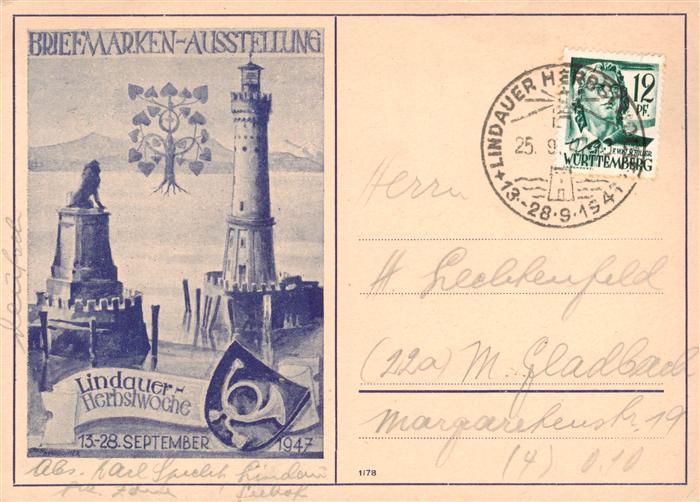 BRIEFMARKEN-AUSSTELLUNG
Lindauer-
Herbstwoche
13-28. SEPTEMBER 1947
Abs. Karl Specht Lindau
LINDAUER
25. 9.
13.-28.9.1947
12
PF.
WÜRTTEMBERG
Herrn
H. Lechtenfeld
(22a) M. Gladbach
Margaretenstr. 19
(4) 0.10
1/78